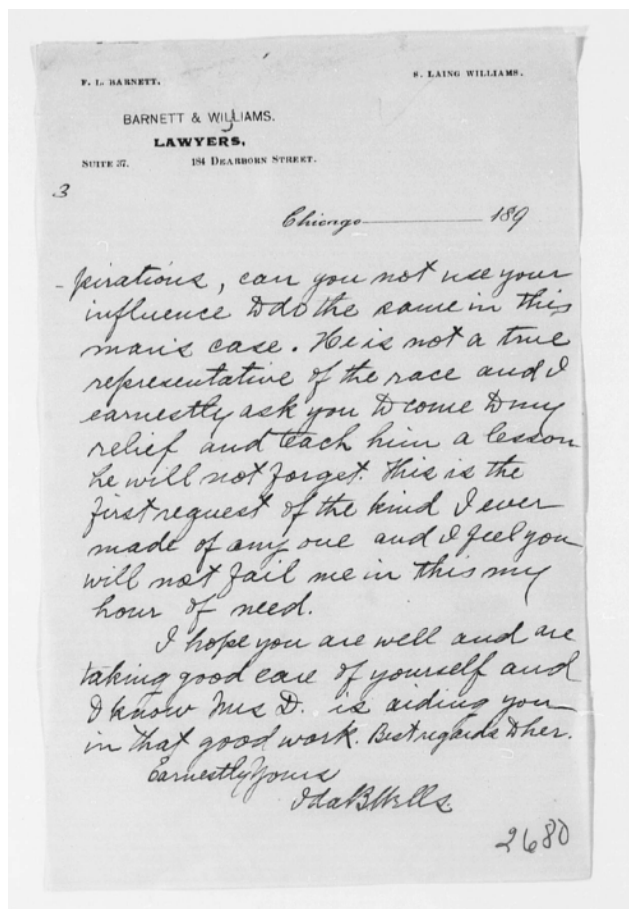 F. L. BARNETT.
S. LAING WILLIAMS.
BARNETT & WILLIAMS.
LAWYERS,
SUITE 37. 184 DEARBORN STREET.
3
Chicago 189
-pirations, can you not use your
influence to do the same in this
man's case. He is not a true
representative of the race and I
earnestly ask you to come to my
relief and teach him a lesson
he will not forget. This is the
first request of the kind I ever
made of any one and I feel you
will not fail me in this my
hour of need.
I hope you are well and are
taking good care of yourself and
I know Mrs D. is aiding you
in that good work. Best regards to her.
Earnestly Yours
Ida B Wells.
2680